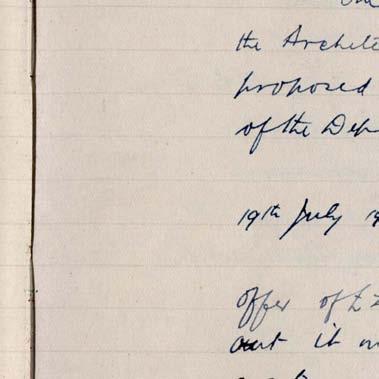 the Archite
proposed
of the Dep
19th July 19
offer of £
it